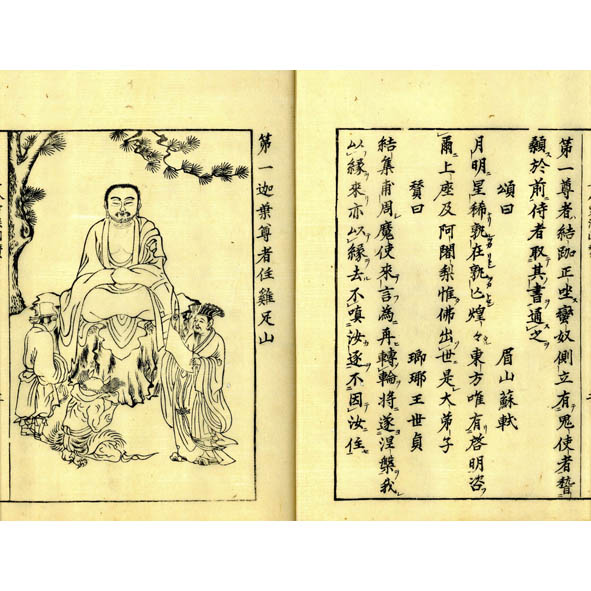 第一尊者結跏正坐蠻奴側立有鬼使者稽
顙於前侍者取其書通之
頌曰 眉山蘇軾
月明星稀孰在孰亾煌々東方唯有啓明咨
爾上座及阿闍梨惟佛出世是大弟子
賛曰 瑯琊王世貞
結集甫周魔使來言為再轉輪將遂涅槃我
以緣來亦以緣去不嗔汝逐不因汝住
第一迦葉尊者住雞足山